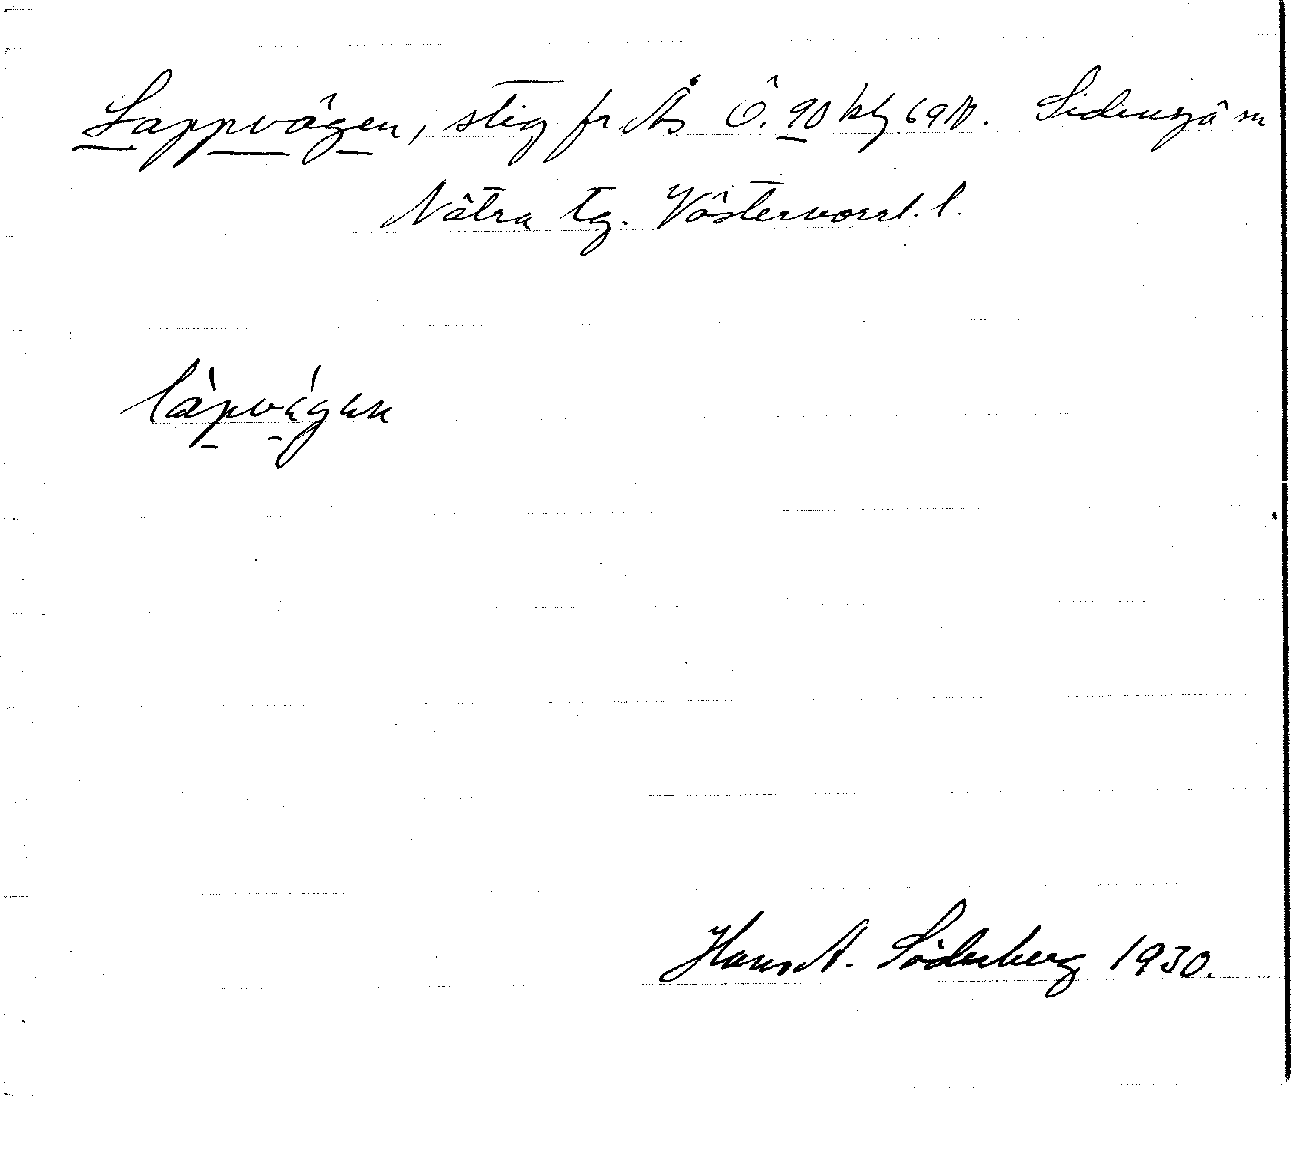 Lappvägen, stig fr Ås Ö. 90 blg 69 N. Sidensjö sn
Nätra tg. Västernorrl. l.
làpvágen
Hans A. Söderberg 1930.